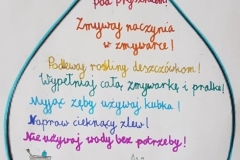 pod prysznicem!
Zmywaj naczynia
w zmywarce!
Podlewaj rośliny deszczówkom!
Wypełniaj całą zmywarkę i pralkę!
Myjąc zęby używaj kubka!
Napraw cieknący zlew!
Nie używaj wody bez potrzeby!